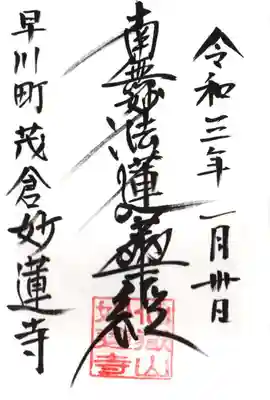 令和三年一月卅日
南無妙法蓮華経
早川町 茂倉妙蓮寺
妙蓮寺